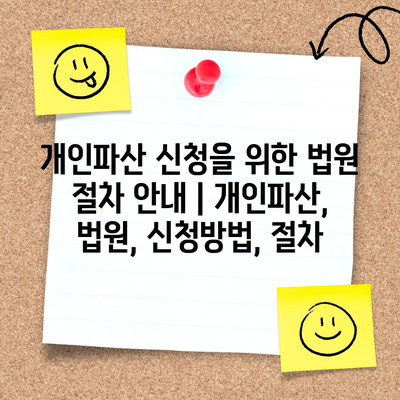 개인파산 신청을 위한 법원
절차 안내 | 개인파산,
법원, 신청방법, 절차